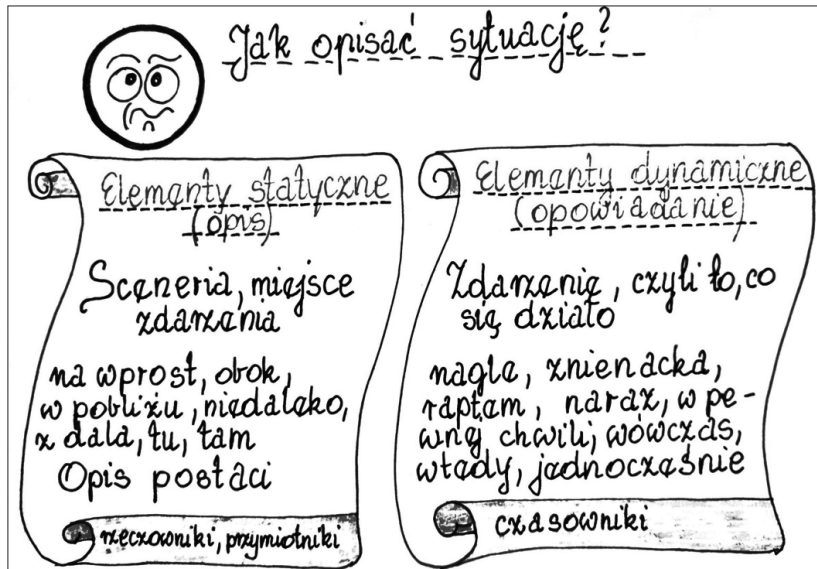 Jak opisać sytuację?
Elementy statyczne
(opis)
Sceneria, miejsce
zdarzenia
na wprost, obok,
w pobliżu, niedaleko,
z dala, tu, tam
Opis postaci
rzeczowniki, przymiotniki
Elementy dynamiczne
(opowiadanie)
Zdarzenie, czyli to, co
się działo
nagle, znienacka,
raptem, naraz, w pe-
wnej chwili, wówczas,
wtedy, jednocześnie
czasowniki